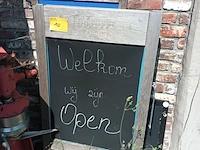 Welkom
wij zijn
Open!